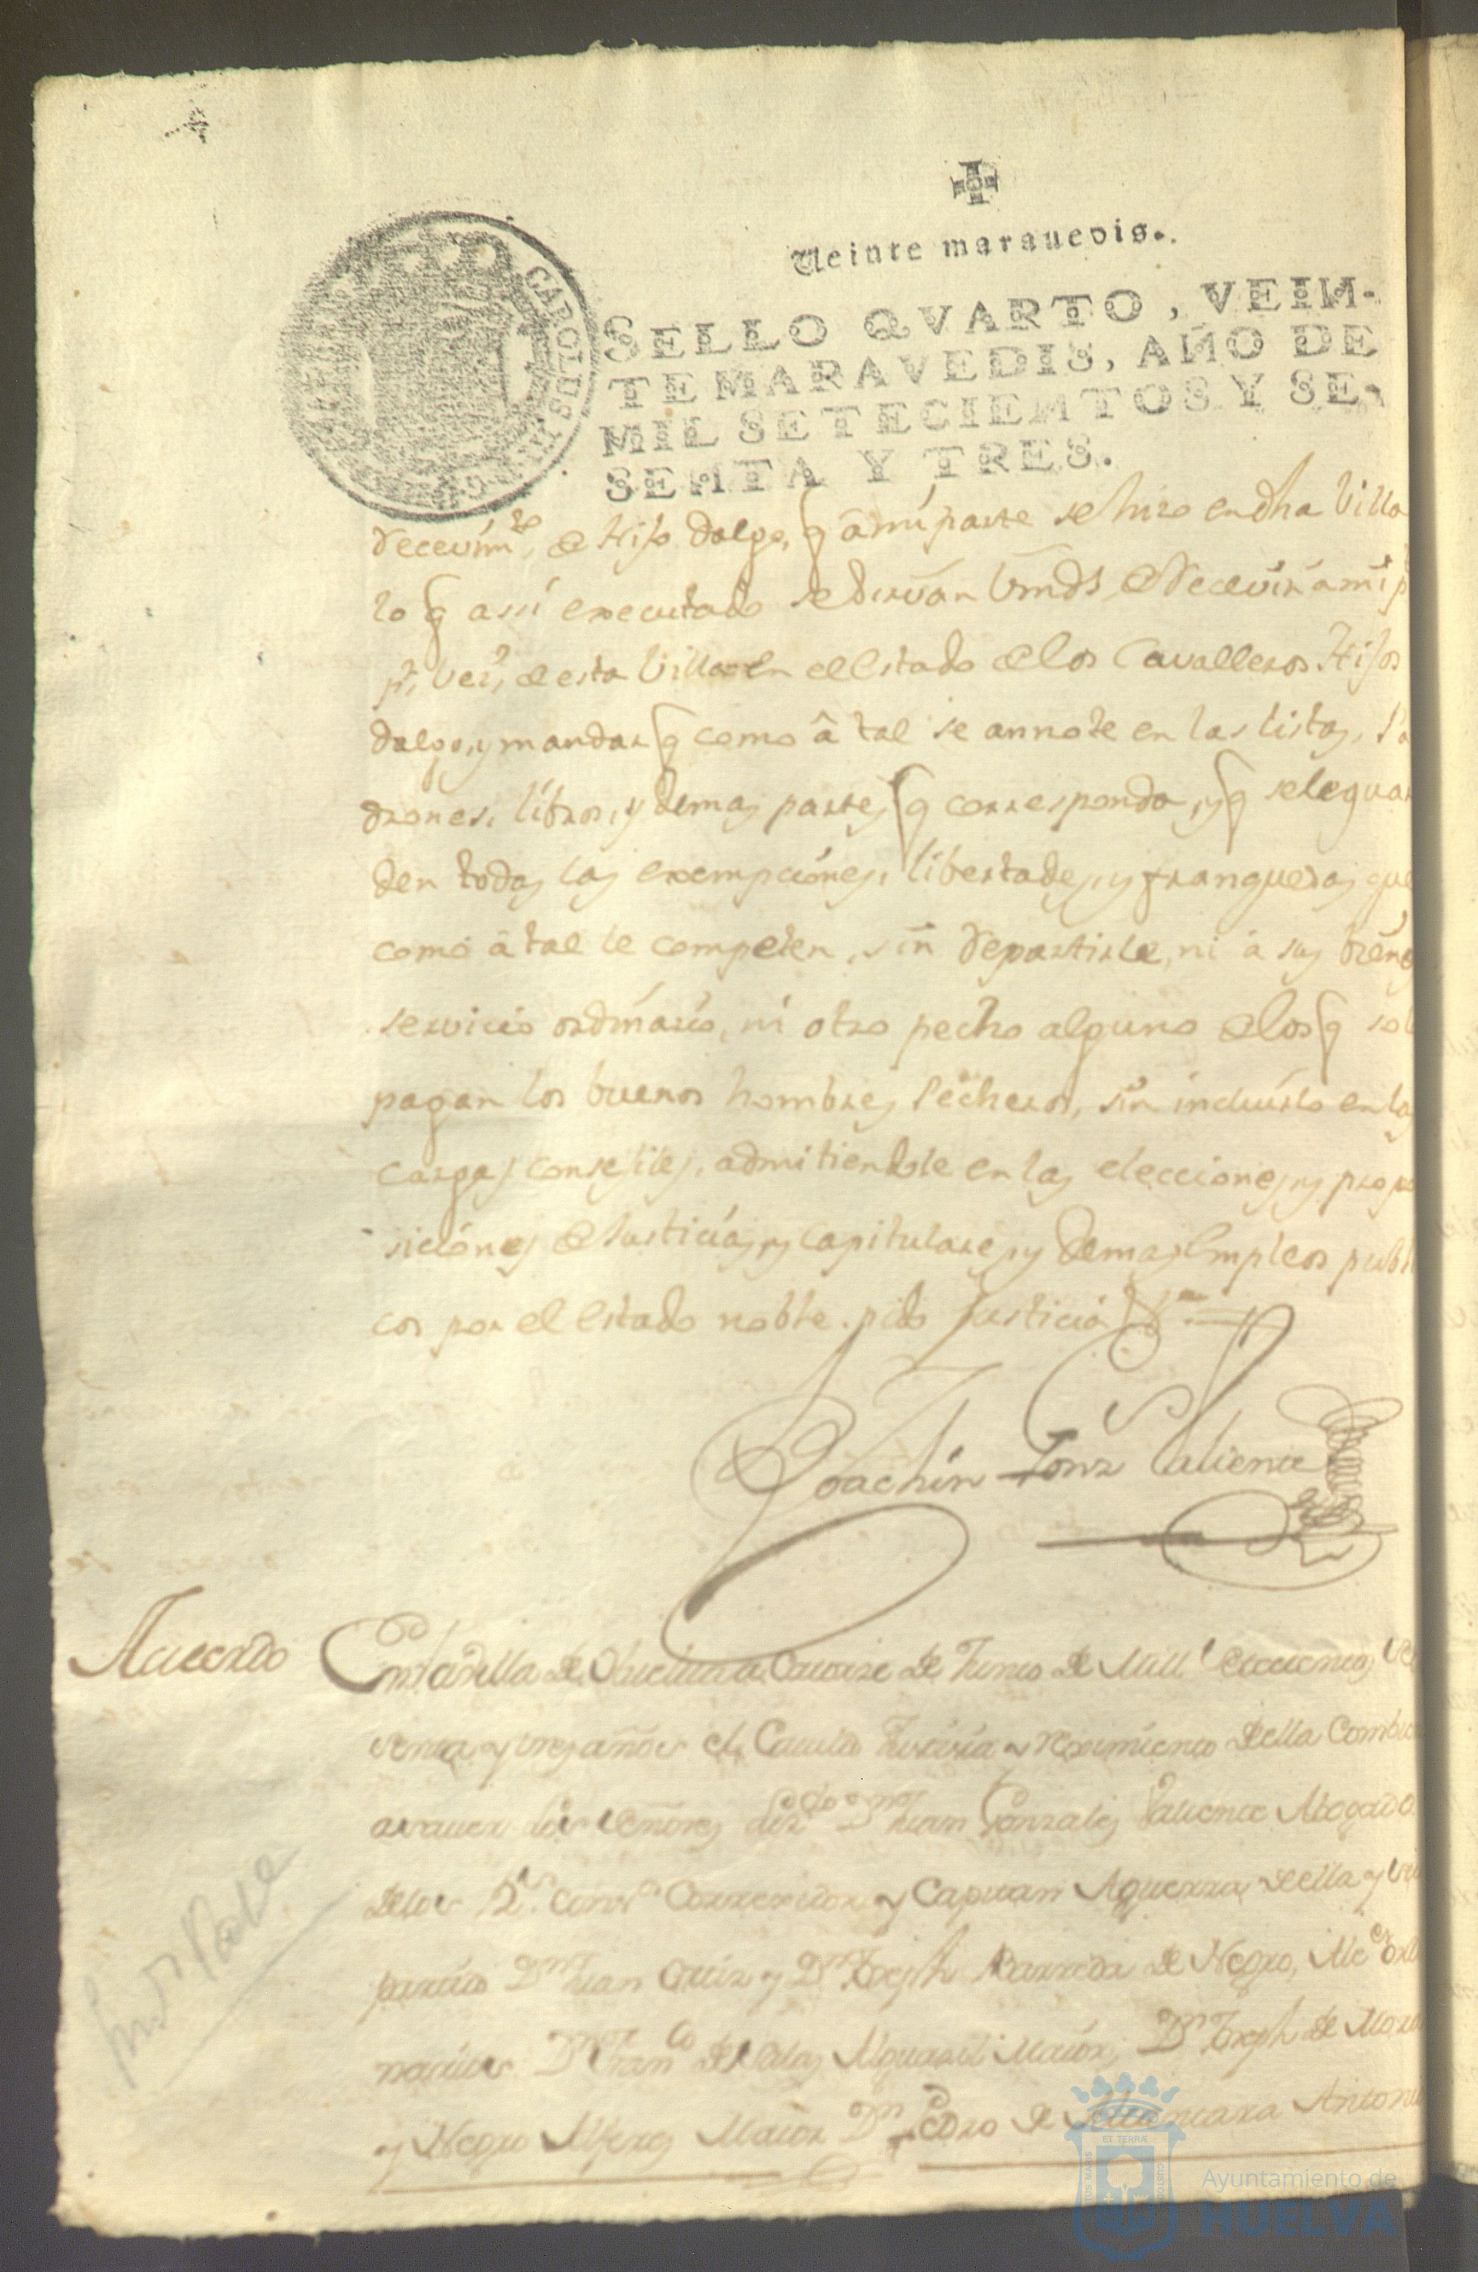 Veinte marauedis.
SELLO QVARTO, VEIN-
TE MARAVEDIS, AÑO DE
MIL SETECIENTOS Y SE-
SENTA Y TRES.
CAROLUS III
recevim.to de Hijo dalgo, q a mi parte se hizo en dha Villa
lo q assi executado se sirvan Vmds de recevir a mi p
p.r vez.o de esta Villa en el estado de los Cavalleros Hijos
dalgo, y mandar q como â tal se annote en las listas, Pa
drones, libros, y demas partes q corresponda, y q se le guar
den todas las exempciones, libertades, y franquezas que
como â tal le competen, sin repartirle, ni a sus bienes
servicio ordinario, ni otro pecho alguno de los q sol
pagan los buenos hombres Pecheros, sin incluirlo en las
cargas consejiles, admitiendole en las elecciones, y propo
siciónes de Justicias, y Capitulares, y demas Empleos publi
cos por el Estado noble. pido Justicia &.a
Joachin Gonz Valiente
Acuerdo
En la Villa de Huelva a Catorze de Junio de Mill Settecientos, se
senta y tres años el Cavildo Justicia y reximiento della Combi
a saver los señores Liz.do D.n Juan Gonzales Valiente Abogado
de los R.s Cons.s Correxidor y Capitan Aguerra, della y su
partido D.n Juan Ortiz y D.n Joseph Barreda de Negro, Alc.es ordi
narios D.n Fran.co de Alguasil Maior, D.n Joseph de Mora
y Negro Alferes Maior D.n Pedro de Alcantara Antonio
ET TERRÆ
Ayuntamiento de
HUELVA